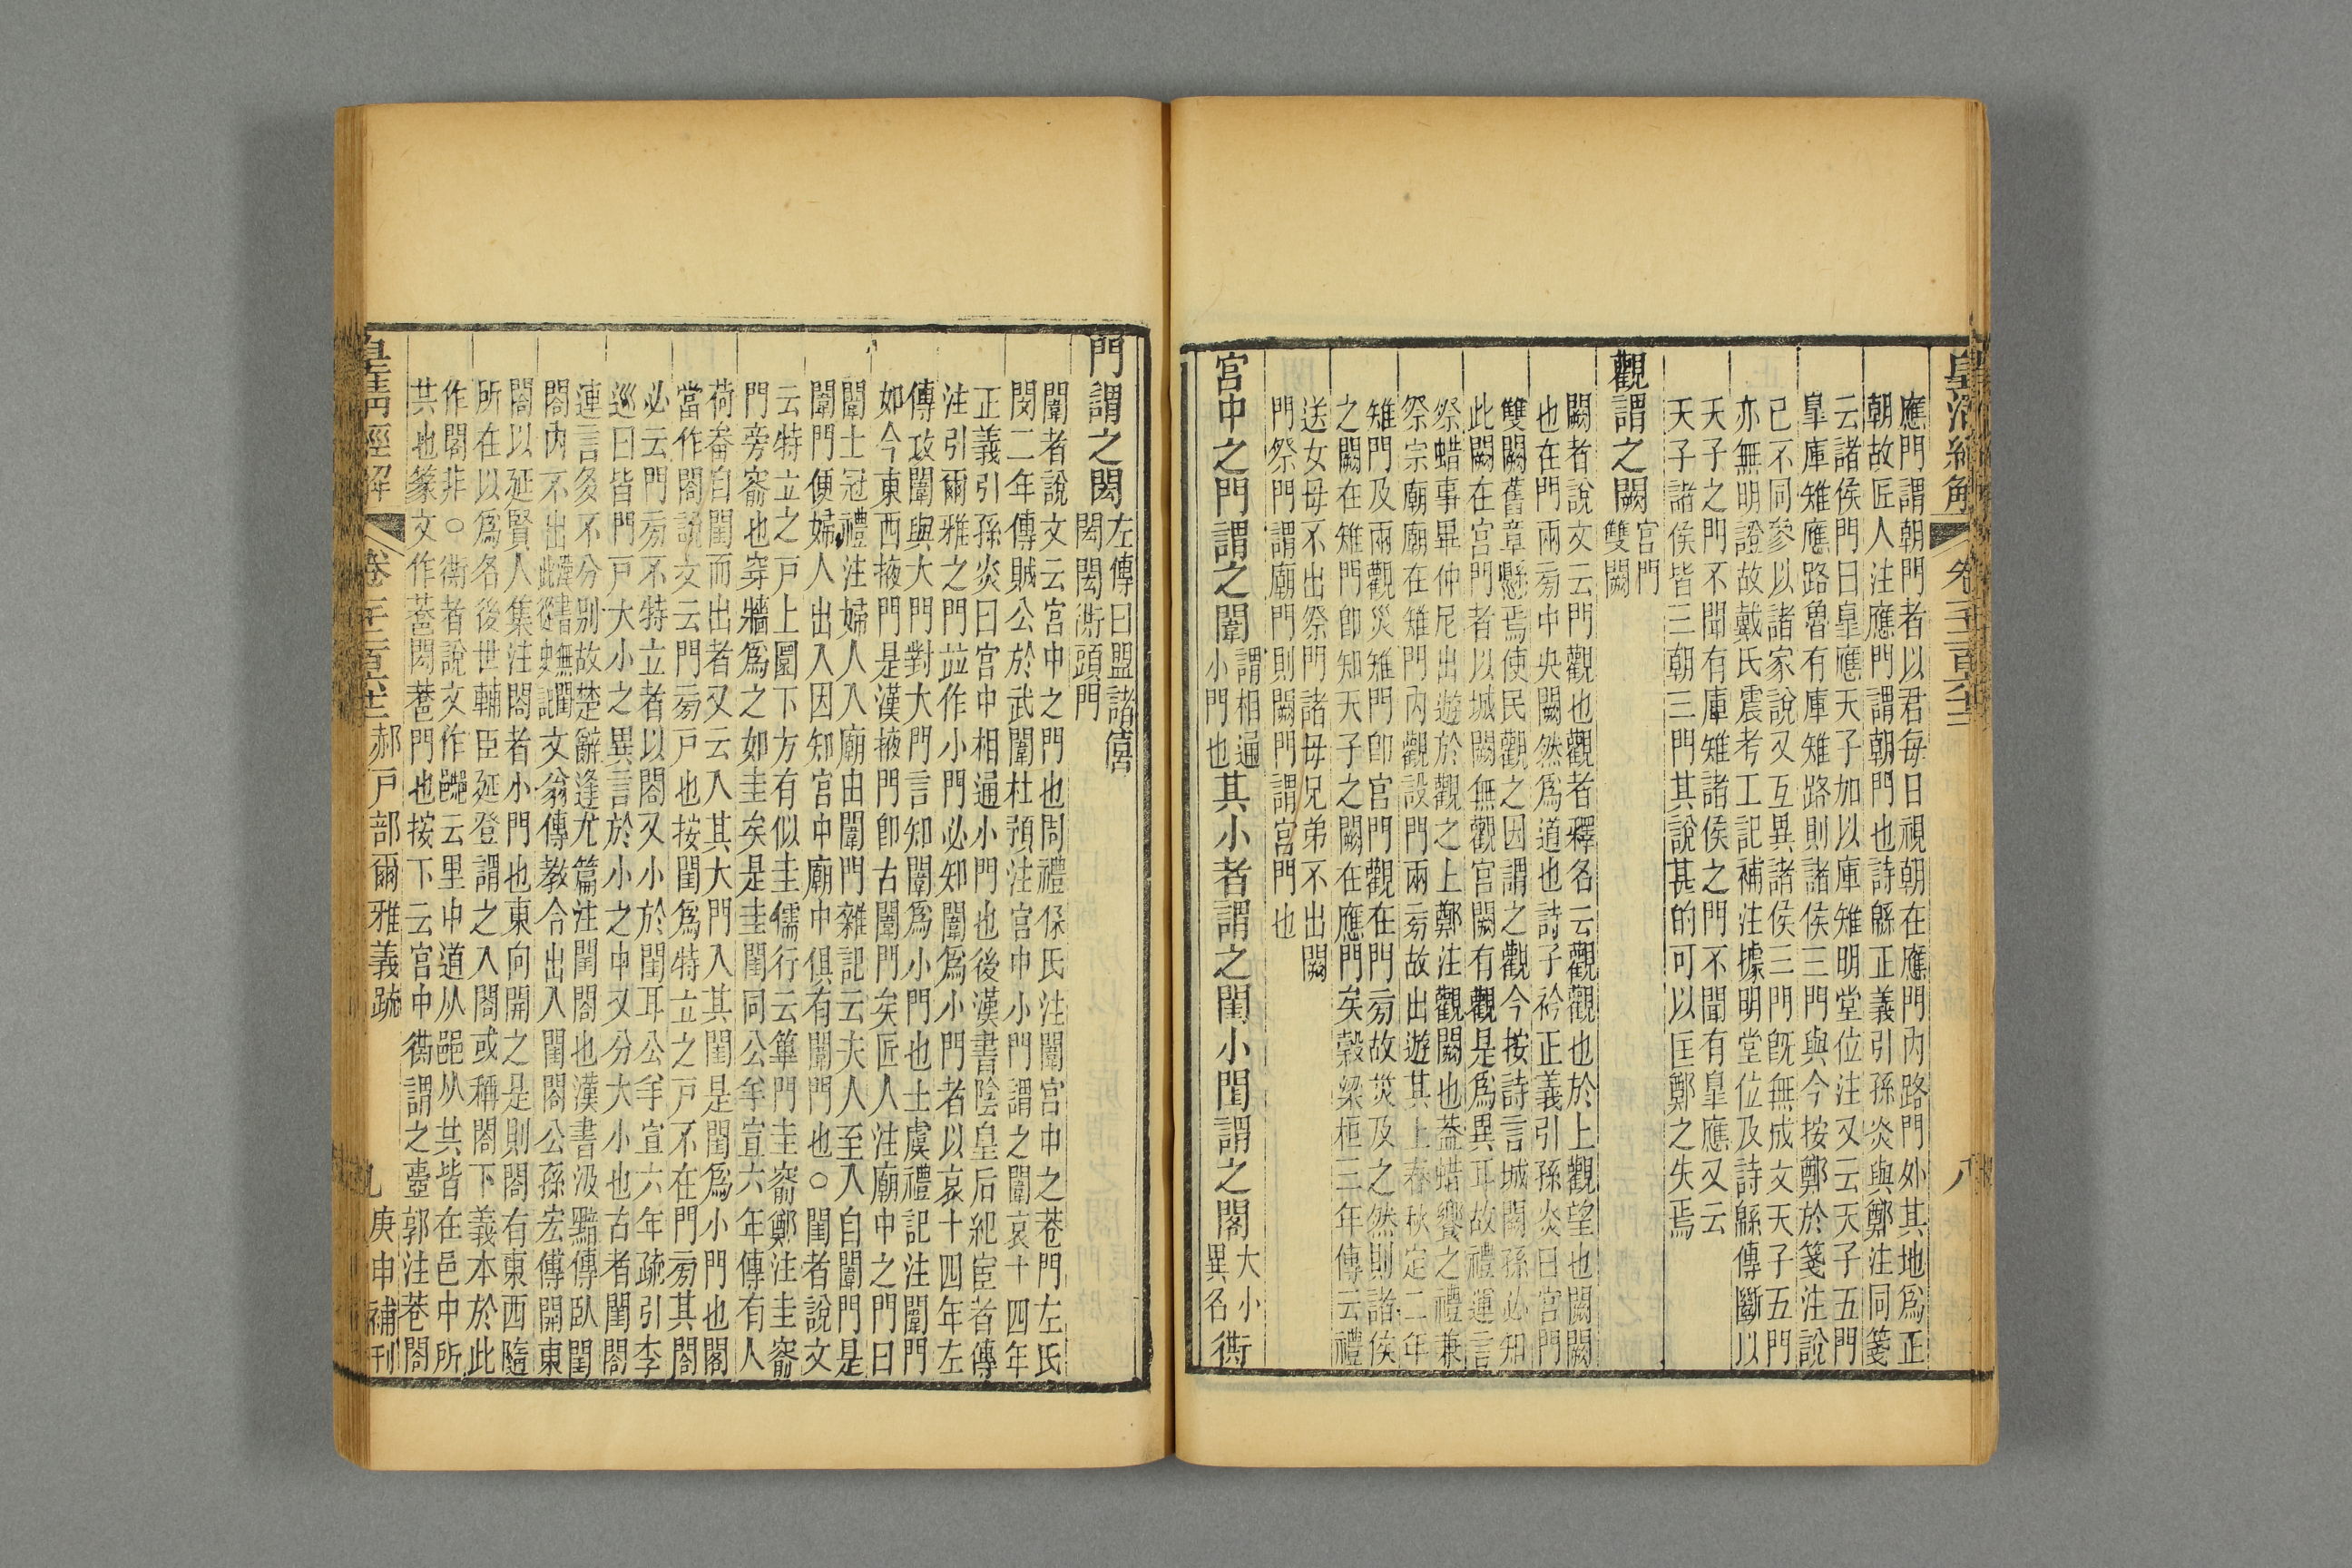 應門謂朝門者以君每日視朝在應門內路門外其地爲正
朝故匠人注應門謂朝門也詩緜正義引孫炎與鄭注同箋
云諸侯門曰皐應天子加以庫雉明堂位注又云天子五門
皐庫雉應路魯有庫雉路則諸侯三門與今按鄭於箋注說
已不同參以諸家說又互異諸侯三門旣無成文天子五門
亦無明證故戴氏震考工記補注據明堂位及詩緜傳斷以
天子之門不聞有庫雉諸侯之門不聞有皐應又云
天子諸侯皆三朝三門其說甚的可以匡鄭之失焉
觀謂之闕宮門雙闕
闕者說文云門觀也觀者釋名云觀觀也於上觀望也闕闕
也在門兩旁中央闕然爲道也詩子衿正義引孫炎曰宮門
雙闕舊章懸焉使民觀之因謂之觀今按詩言城闕孫必知
此闕在宮門者以城闕無觀宮闕有觀是爲異耳故禮運言
祭蜡事畢仲尼出遊於觀之上鄭注觀闕也葢蜡饗之禮兼
祭宗廟廟在雉門內觀設門兩旁故出遊其上春秋定二年
雉門及兩觀災雉門卽宮門觀在門旁故災及之然則諸侯
之闕在雉門卽知天子之闕在應門矣穀梁桓三年傳云禮
送女母不出祭門諸母兄弟不出闕
門祭門謂廟門則闕門謂宮門也
宮中之門謂之闈謂相通小門也其小者謂之閨小閨謂之閤大小異名衖
門謂之閎左傳曰盟諸僖閎閎衖頭門
闈者說文云宮中之門也周禮保氏注闈宮中之巷門左氏
閔二年傳賊公於武闈杜預注宮中小門謂之闈哀十四年
正義引孫炎曰宮中相通小門也後漢書陰皇后紀宦者傳
注引爾雅之門竝作小門必知闈爲小門者以哀十四年左
傳攻闈與大門對大門言知闈爲小門也士虞禮記注闈門
如今東西掖門是漢掖門卽古闈門矣匠人注廟中之門曰
闈士冠禮注婦人入廟由闈門雜記云夫人至入自闈門是
闈門便婦人出入因知宮中廟中俱有闈門也○閨者說文
云特立之戶上圜下方有似圭儒行云篳門圭窬鄭注圭窬
門旁窬也穿牆爲之如圭矣是圭閨同公羊宣六年傳有人
荷畚自閨而出者又云入其大門入其閨是閨爲小門也閣
當作閤說文云門旁戶也按閨爲特立之戶不在門旁其閤
必云門旁不特立者以閤又小於閨耳公羊宣六年疏引李
巡曰皆門戶大小之異言於小之中又分大小也古者閨閤
連言多不分別故楚辭逢尤篇注閨閤也漢書汲黯傳臥閨
閤內不出漢書無閨此從史記文翁傳教令出入閨閤公孫宏傳開東
閤以延賢人集注閤者小門也東向開之是則閤有東西隨
所在以爲名後世輔臣延登謂之入閤或稱閤下義本於此
作閣非○衖者說文作𨞠云里中道从𨛜从共皆在邑中所
其也篆文作巷閎巷門也按下云宮中衖謂之壼郭注巷閤
皇淸經解 卷 郝戶部爾雅義疏 九 庚申補刊